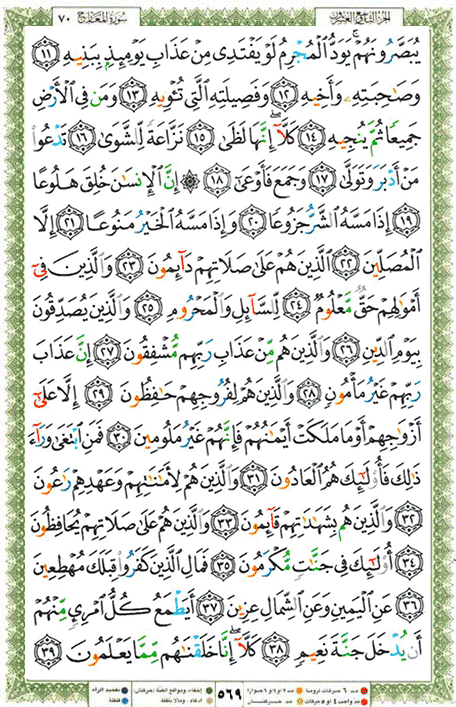 الجزء التاسع والعشرون
سورة المعارج ٧٠
يُبَصَّرُونَهُمْ ۚ يَوَدُّ ٱلْمُجْرِمُ لَوْ يَفْتَدِى مِنْ عَذَابِ يَوْمِئِذٍۭ بِبَنِيهِ ١١
وَصَـٰحِبَتِهِۦ وَأَخِيهِ ١٢ وَفَصِيلَتِهِ ٱلَّتِى تُـْٔوِيهِ ١٣ وَمَن فِى ٱلْأَرْضِ
جَمِيعًا ثُمَّ يُنجِيهِ ١٤ كَلَّآ ۖ إِنَّهَا لَظَىٰ ١٥ نَزَّاعَةً لِّلشَّوَىٰ ١٦ تَدْعُوا۟
مَنْ أَدْبَرَ وَتَوَلَّىٰ ١٧ وَجَمَعَ فَأَوْعَىٰٓ ١٨ ۞ إِنَّ ٱلْإِنسَـٰنَ خُلِقَ هَلُوعًا
١٩ إِذَا مَسَّهُ ٱلشَّرُّ جَزُوعًا ٢٠ وَإِذَا مَسَّهُ ٱلْخَيْرُ مَنُوعًا ٢١ إِلَّا
ٱلْمُصَلِّينَ ٢٢ ٱلَّذِينَ هُمْ عَلَىٰ صَلَاتِهِمْ دَآئِمُونَ ٢٣ وَٱلَّذِينَ فِىٓ
أَمْوَٰلِهِمْ حَقٌّ مَّعْلُومٌ ٢٤ لِّلسَّآئِلِ وَٱلْمَحْرُومِ ٢٥ وَٱلَّذِينَ يُصَدِّقُونَ
بِيَوْمِ ٱلدِّينِ ٢٦ وَٱلَّذِينَ هُم مِّنْ عَذَابِ رَبِّهِم مُّشْفِقُونَ ٢٧ إِنَّ عَذَابَ
رَبِّهِمْ غَيْرُ مَأْمُونٍ ٢٨ وَٱلَّذِينَ هُمْ لِفُرُوجِهِمْ حَـٰفِظُونَ ٢٩ إِلَّا عَلَىٰٓ
أَزْوَٰجِهِمْ أَوْ مَا مَلَكَتْ أَيْمَـٰنُهُمْ فَإِنَّهُمْ غَيْرُ مَلُومِينَ ٣٠ فَمَنِ ٱبْتَغَىٰ وَرَآءَ
ذَٰلِكَ فَأُو۟لَـٰٓئِكَ هُمُ ٱلْعَادُونَ ٣١ وَٱلَّذِينَ هُمْ لِأَمَـٰنَـٰتِهِمْ وَعَهْدِهِمْ رَٰعُونَ
٣٢ وَٱلَّذِينَ هُم بِشَهَـٰدَٰتِهِمْ قَآئِمُونَ ٣٣ وَٱلَّذِينَ هُمْ عَلَىٰ صَلَاتِهِمْ يُحَافِظُونَ
٣٤ أُو۟لَـٰٓئِكَ فِى جَنَّـٰتٍ مُّكْرَمُونَ ٣٥ فَمَالِ ٱلَّذِينَ كَفَرُوا۟ قِبَلَكَ مُهْطِعِينَ
٣٦ عَنِ ٱلْيَمِينِ وَعَنِ ٱلشِّمَالِ عِزِينَ ٣٧ أَيَطْمَعُ كُلُّ ٱمْرِئٍ مِّنْهُمْ
أَن يُدْخَلَ جَنَّةَ نَعِيمٍ ٣٨ كَلَّآ ۖ إِنَّا خَلَقْنَـٰهُم مِّمَّا يَعْلَمُونَ ٣٩
٥٦٩